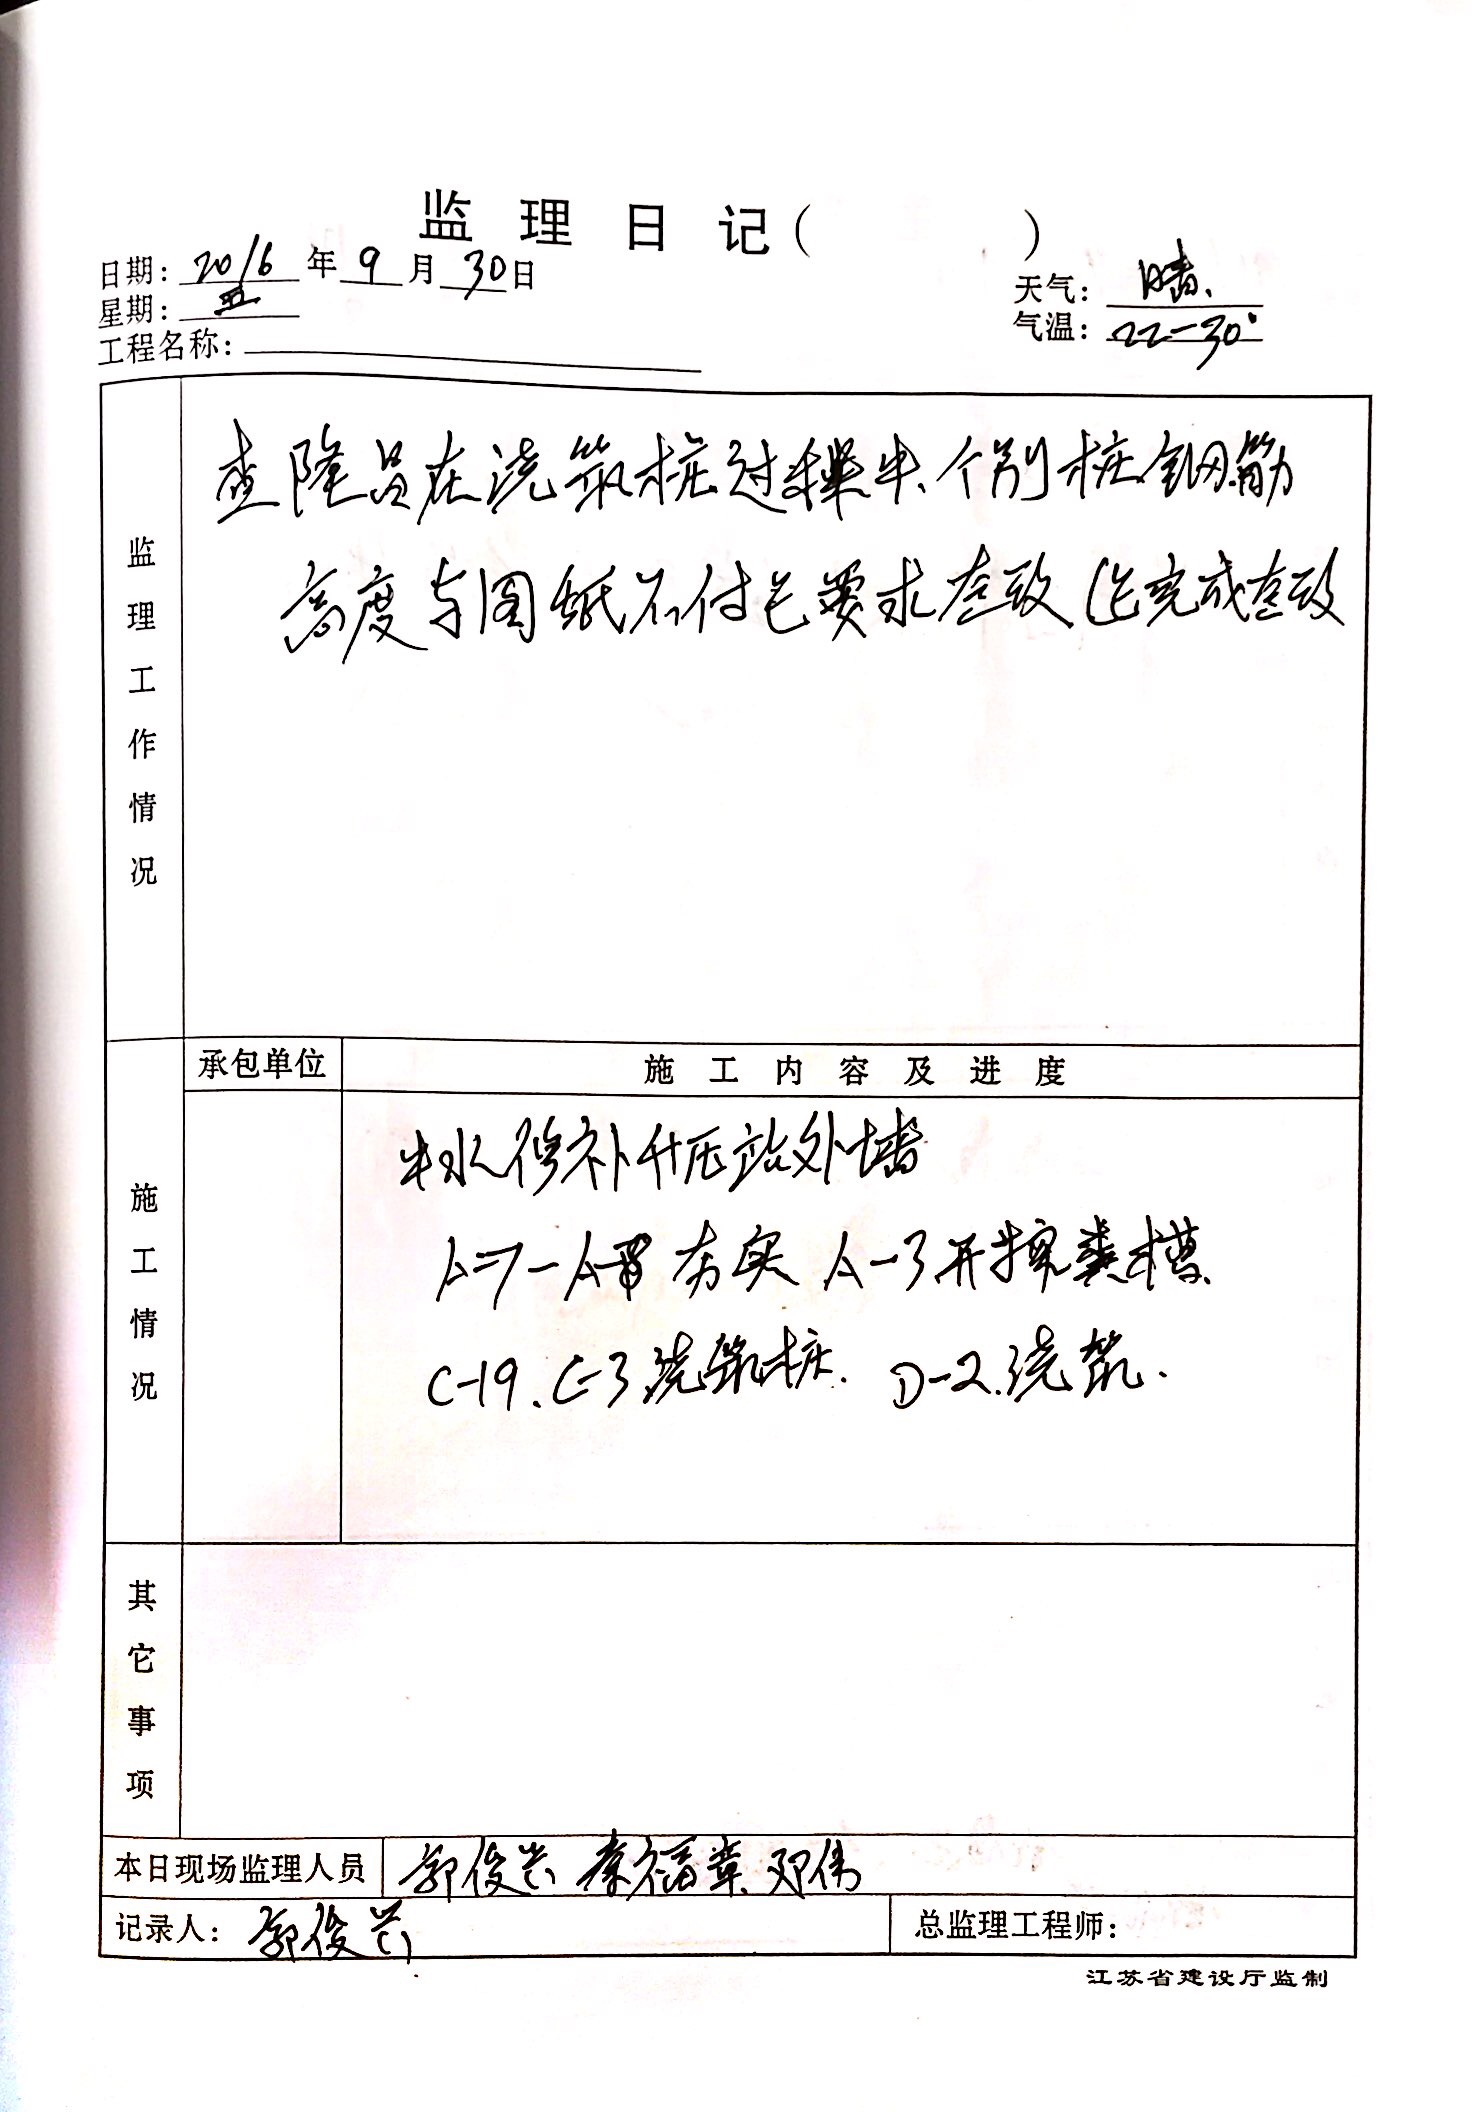 监理日记( )
日期: 2016 年 9 月 30 日
星期: 五
天气: 晴.
气温: 22-30°
工程名称:
监理工作情况
在浇筑桩过程中、个别桩钢筋
高度与图纸不付已要求整改 已完成整改
施工情况
承包单位
施工内容及进度
中水修补升压站外墙
夯实 A-3开挖基槽.
C-19、C-3浇筑桩. D-2.浇筑.
其它事项
本日现场监理人员 郭俊兰 秦福章 邓伟
记录人: 郭俊兰
总监理工程师:
江苏省建设厅监制